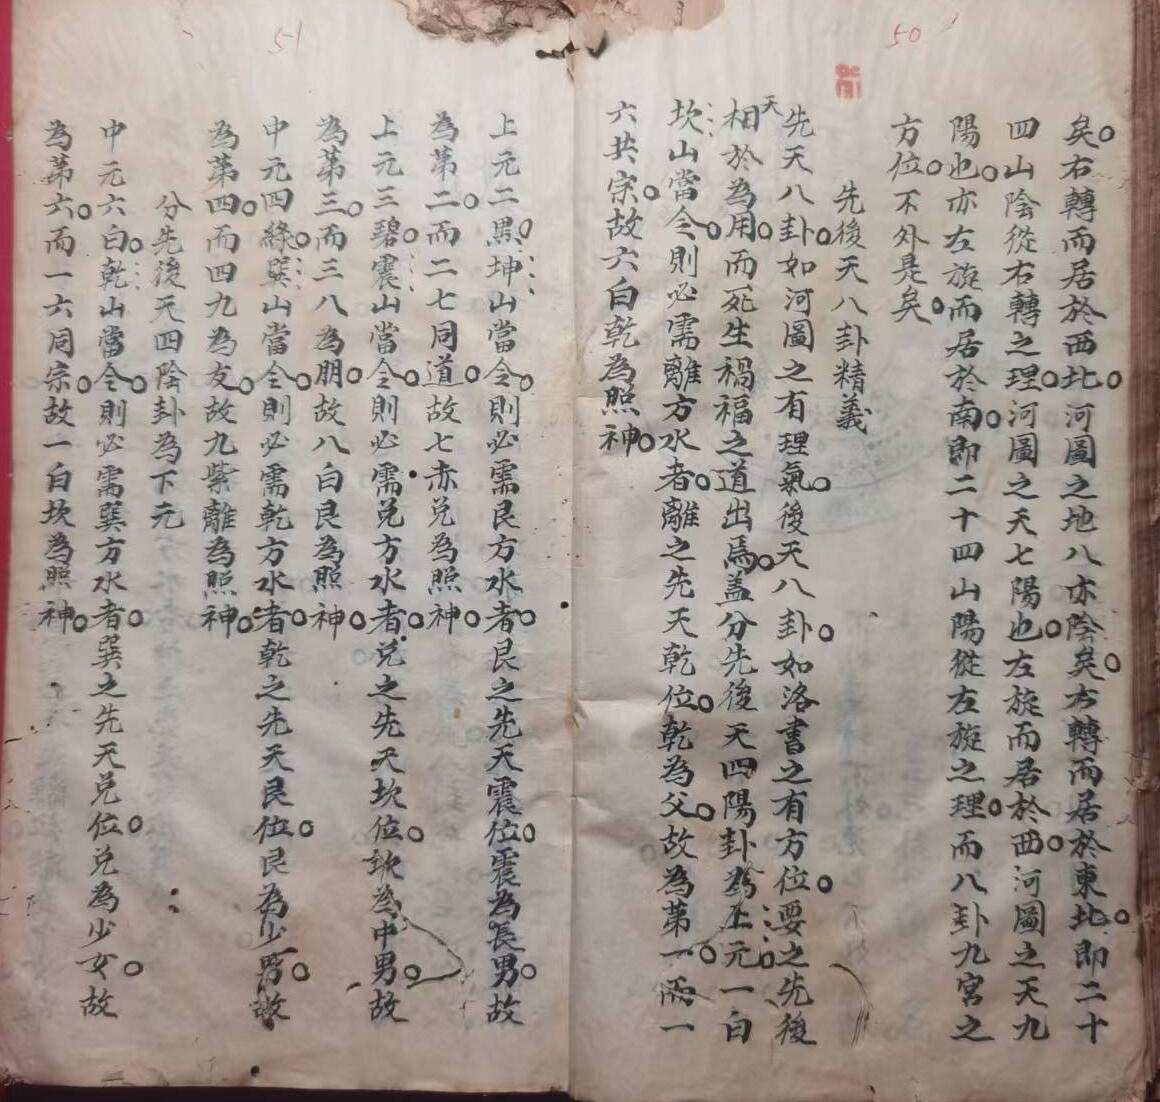 50
矣。右轉而居於西北。河圖之地八亦陰矣。右轉而居於東北。即二十
四山陰從右轉之理。河圖之天七陽也。左旋而居於西。河圖之天九
陽也。亦左旋而居於南。即二十四山陽從左旋之理。而八卦九宮之
方位。不外是矣。
先後天八卦精義
先天八卦。如河圖之有理氣。後天八卦。如洛書之有方位。要之先後
天相於為用。而死生禍福之道出焉。盖分先後天四陽卦為上元。一白
坎山當令。則必需離方水者。離之先天乾位。乾為父。故為第一。而一
六共宗。故六白乾為照神。
51
上元二黑。坤山當令。則必需艮方水者。艮之先天震位。震為長男。故
為第二。而二七同道。故七赤兌為照神。
上元三碧。震山當令。則必需兌方水者。兌之先天坎位。坎為中男。故
為第三。而三八為朋。故八白艮為照神。
中元四綠。巽山當令。則必需乾方水者。乾之先天艮位。艮為少男。故
為第四。而四九為友。故九紫離為照神。
分先後天四陰卦為下元
中元六白。乾山當令。則必需巽方水者。巽之先天兌位。兌為少女。故
為第六。而一六同宗。故一白坎為照神。